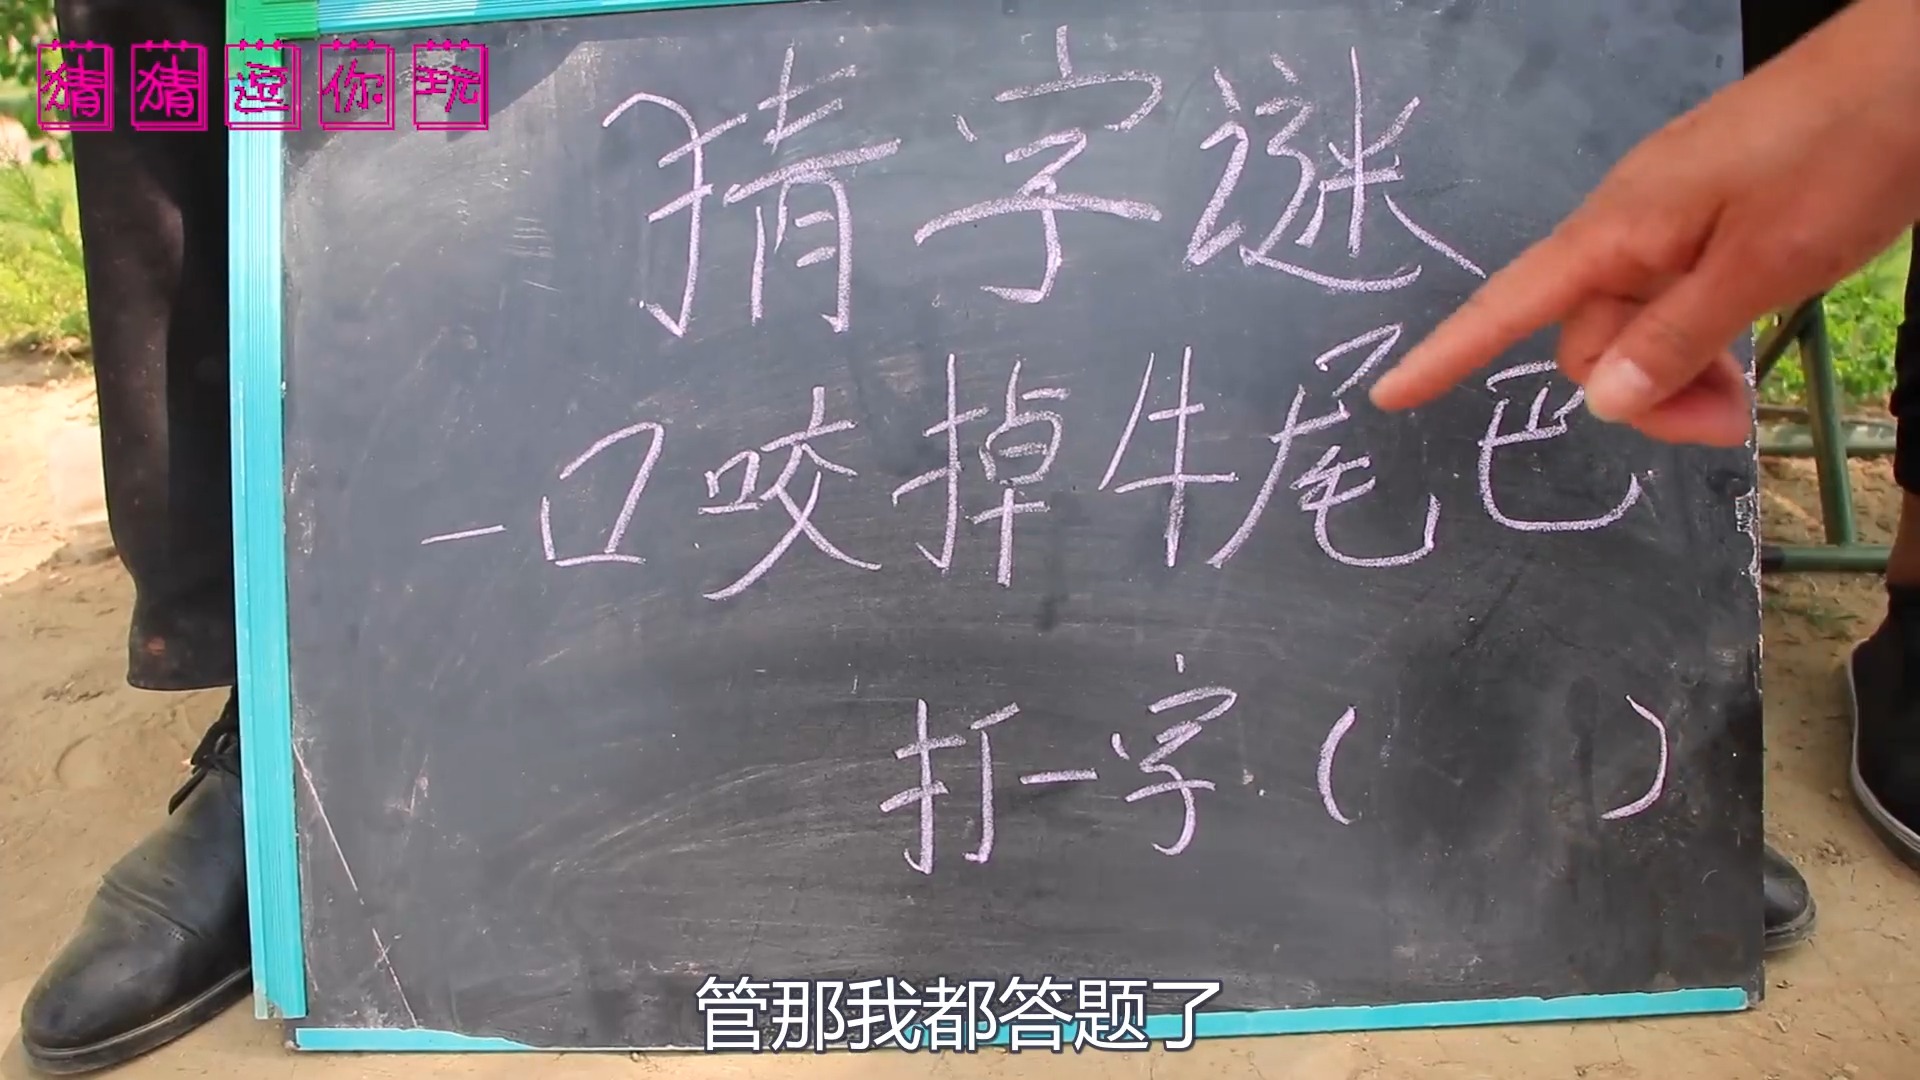 猜猜逗你玩
猜字谜
一口咬掉牛尾巴
打一字（ ）
管那我都答题了